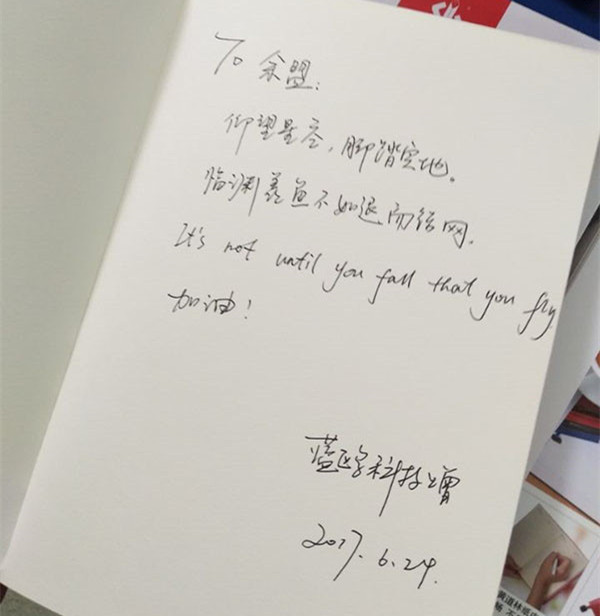 To 余盟:
仰望星空,脚踏实地。
临渊羡鱼不如退而结网.
It's not until you fall that you fly.
加油!
科技
2017.6.24.